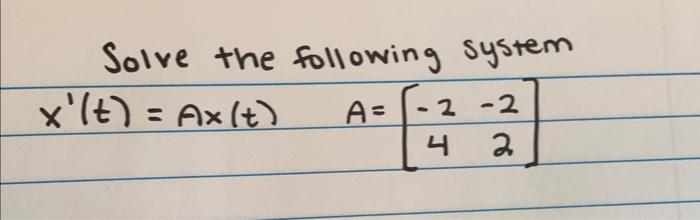 Solve the following system
x'(t) = Ax(t) A = [-2 -2
4 2]